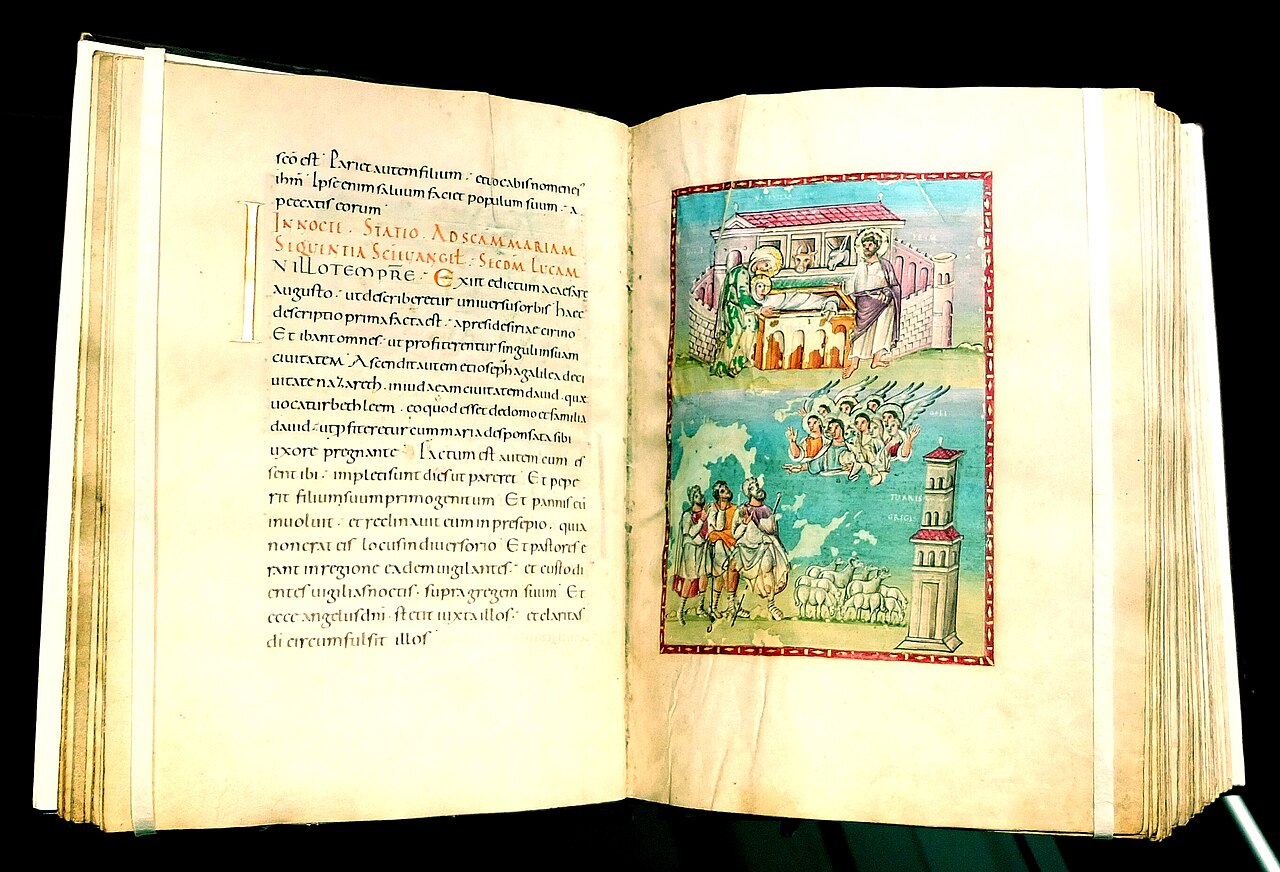 sc̄o est · Pariet autem filium · et vocabis nomen ei'
ih̄m · Ipse enim salvum faciet populum suum · a
peccatis eorum
IN NOCTE · STATIO · AD SCAM MARIAM
SEQUENTIA SC̄I EVANGEL̄ · SECDM LUCAM
IN ILLO TEMPR̄E · Exiit edictum a caesare
augusto · ut describeretur universus orbis haec
descriptio prima facta est · a preside siriae cirino
Et ibant omnes · ut profiterentur singuli in suam
civitatem Ascendit autem et ioseph a galilea de ci
vitate nazareth · in iudaeam civitatem david · quae
vocatur bethleem · eo quod esset de domo et familia
david · ut p̄fiteretur cum maria desponsata sibi
uxore pregnante Factum est autem cum es
sent ibi · impleti sunt dies ut pareret · Et pepe
rit filium suum primogenitum · Et pannis eū
involvit · et reclinavit eum in presepio · quia
non erat eis locus in diversorio Et pastores e
rant in regione eadem vigilantes · et custodi
entes vigilias noctis · supra gregem suum Et
ecce angelus dn̄i · stetit iuxta illos · et claritas
di circumfulsit illos
TURRIS
GREGIS